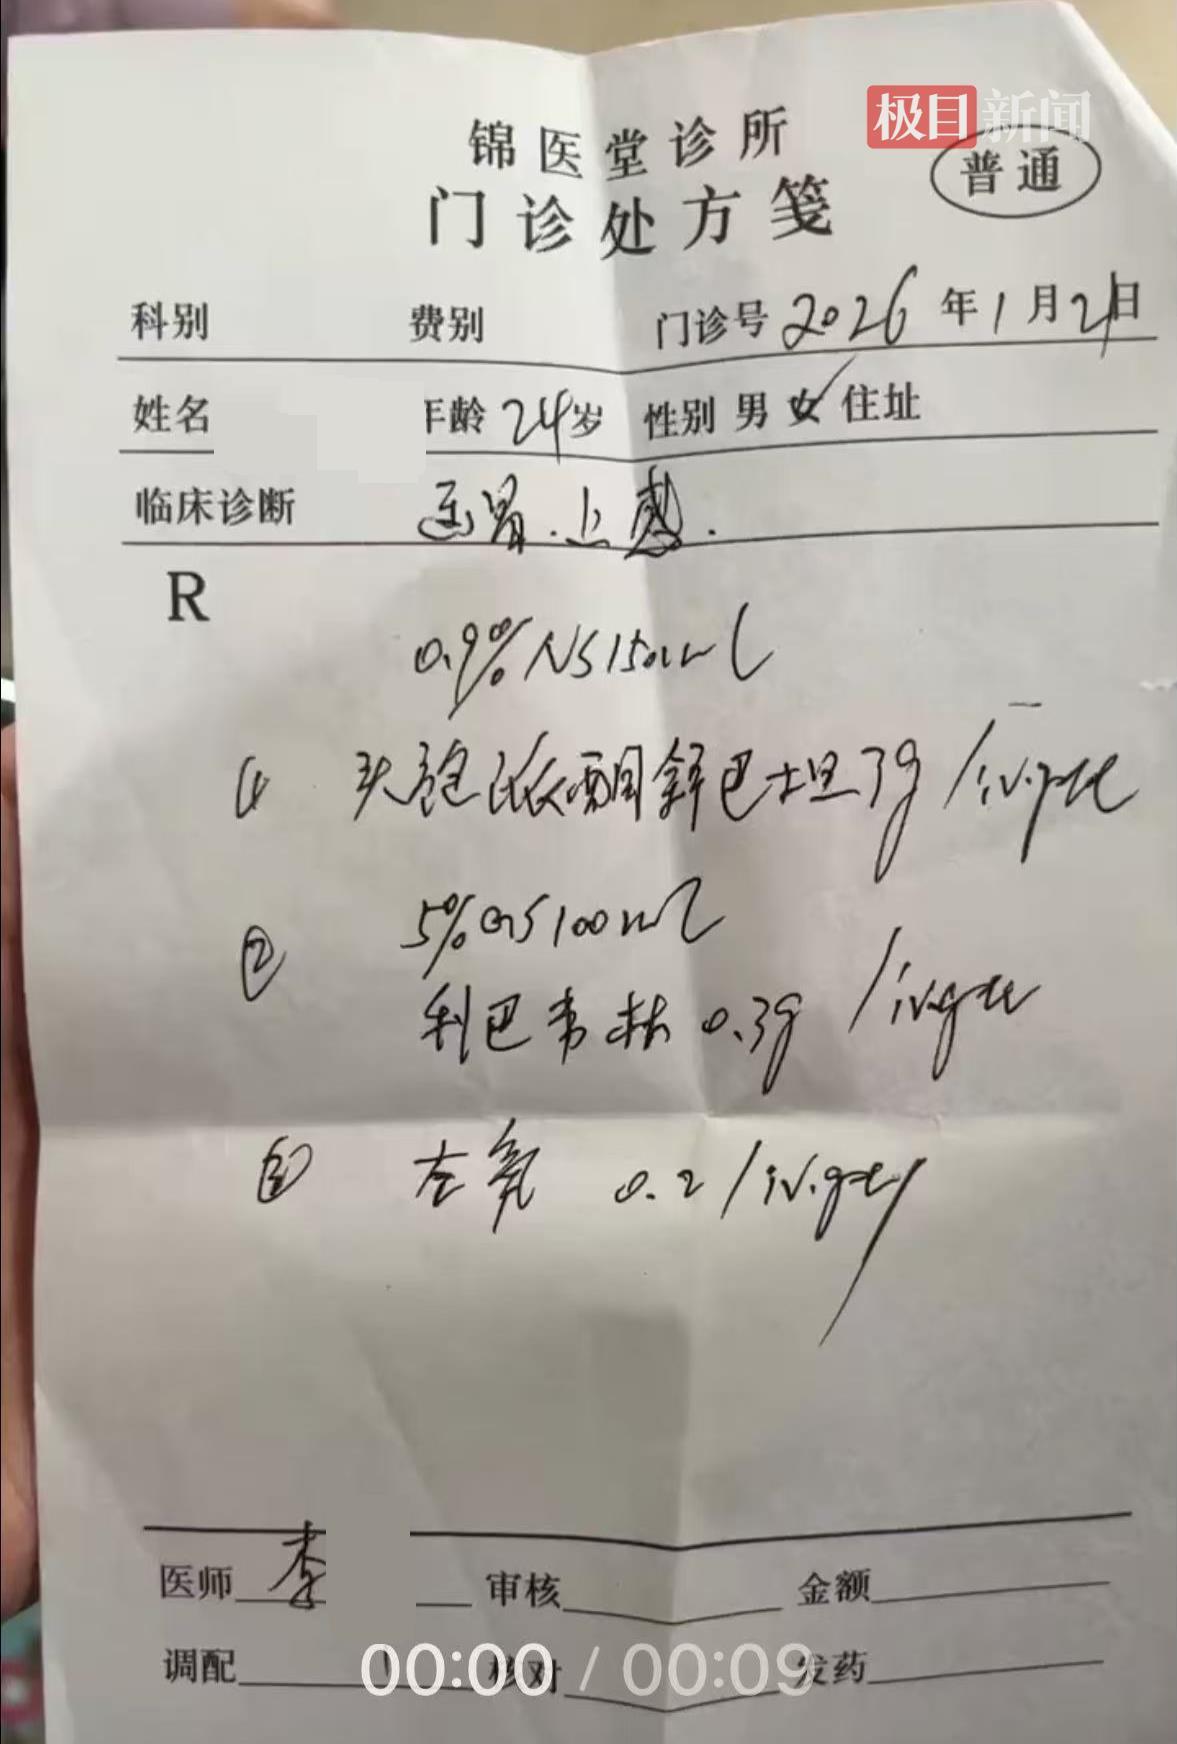 极目新闻
锦医堂诊所
普通
门诊处方笺
科别 费别 门诊号 2026年1月21日
姓名 年龄 24岁 性别 男 女✓ 住址
临床诊断 上感.
R
0.9% NS 150ml
① 头孢哌酮舒巴坦 3g / iv.gtt
5% GS 100ml
② 利巴韦林 0.3g / iv.gtt
③ 左氧 0.2 / iv.gtt
医师 李 审核 金额
调配 核对 发药
00:00 / 00:09